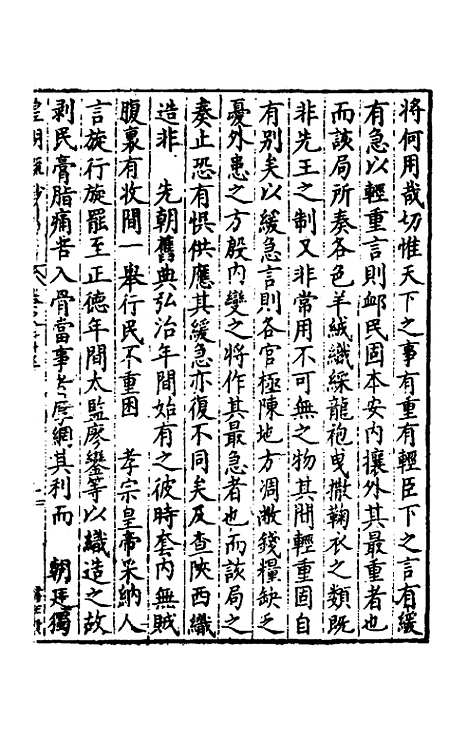 將何用哉切惟天下之事有重有輕臣下之言有緩
有急以輕重言則邮民固本安内攘外其最重者也
而該局所奏各色羊絨織綵龍袍曳撒鞠衣之類既
非先王之制又非常用不可無之物其間輕重固自
有别矣以緩急言則各官極陳地方凋敝錢糧缺乏
憂外患之方殷内變之將作其最急者也而該局之
奏止恐有悞供應其緩急亦復不同矣及查陝西織
造非　先朝舊典弘治年間始有之彼時套内無賊
腹裏有收間一舉行民不重困　孝宗皇帝采納人
言旋行旋罷至正德年間太監廖鑾等以織造之故
剥民膏脂痛苦入骨當事者厚網其利而　朝廷獨
皇明疏鈔